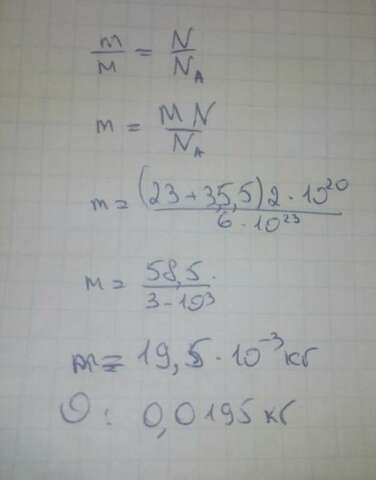 m/M = N/N_A
m = MN/N_A
m = (23+35,5)2·10²⁰/6·10²³
м = 58,5./3-10³
m = 19,5·10⁻³кг
О: 0,0195кг